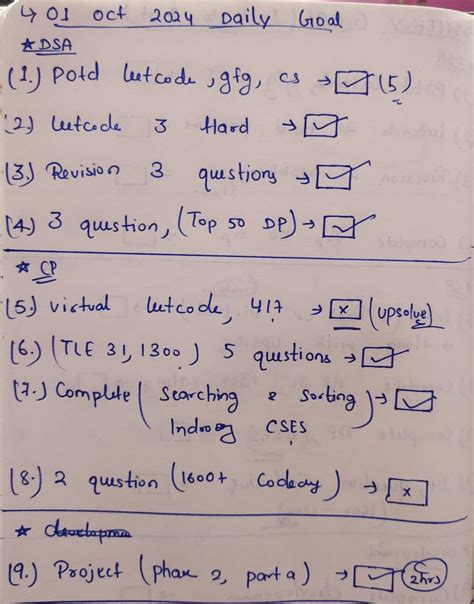 ↳ 01 oct 2024 Daily Goal
★ DSA
(1.) Potd leetcode, gfg, cs → ☑ (5)
(2.) leetcode 3 Hard → ☑
(3.) Revision 3 questions → ☑
(4.) 3 question, (Top 50 DP) → ☑
★ CP
(5.) virtual leetcode, 417 → ☒ (upsolve)
(6.) (TLE 31, 1300) 5 questions → ☑
(7.) Complete (Searching & Sorting) → ☑
CSES
(8.) 2 question (1600+ ) → ☒
★
(9.) Project (phase 2, part a) → ☑ (2hrs)